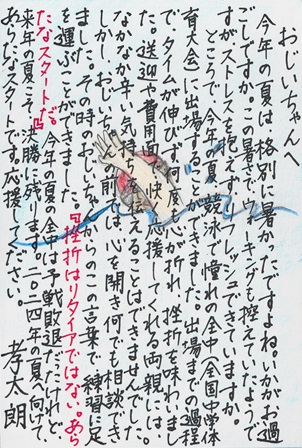 おじいちゃんへ
今年の夏は格別に暑かったですよね。いかがお過
ごしですか。この暑さで、ウォーキングも控えていたようで
すが、ストレスを抱えず、リフレッシュできていますか。
ところで、今年の夏、競泳で憧れの全中(全国中学体
育大会)に出場することができました。出場までの過程
で、タイムが伸びず何度も心が折れ、挫折を味わいまし
た。送迎や費用面で快く応援してくれる両親には、
なかなか辛い気持ちを伝えることはできませんでした。
しかし、おじいちゃんの前では心を開き何でも相談でき
ました。その時のおじいちゃんからのこの言葉で、練習に足
を運ぶことができました。「挫折はリタイアではない。あら
たなスタートだ。」今年の夏の全中は予戦敗退だったけれど、
来年の夏こそ、決勝に残ります。二〇二四年の夏へ向けて、
あらたなスタートです。応援してください。
孝太朗